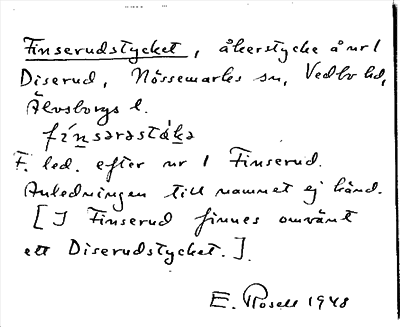 Finserudstycket, åkerstycke å nr 1
Diserud, Nössemarks sn, Vedbo hd,
Älvsborgs l.
fi´n̲sərəsták̲ə
F. led. efter nr 1 Finserud.
Anledningen till namnet ej känd.
[I Finserud finnes omvänt
ett Diserudstycket.].
E. Rosell 1948